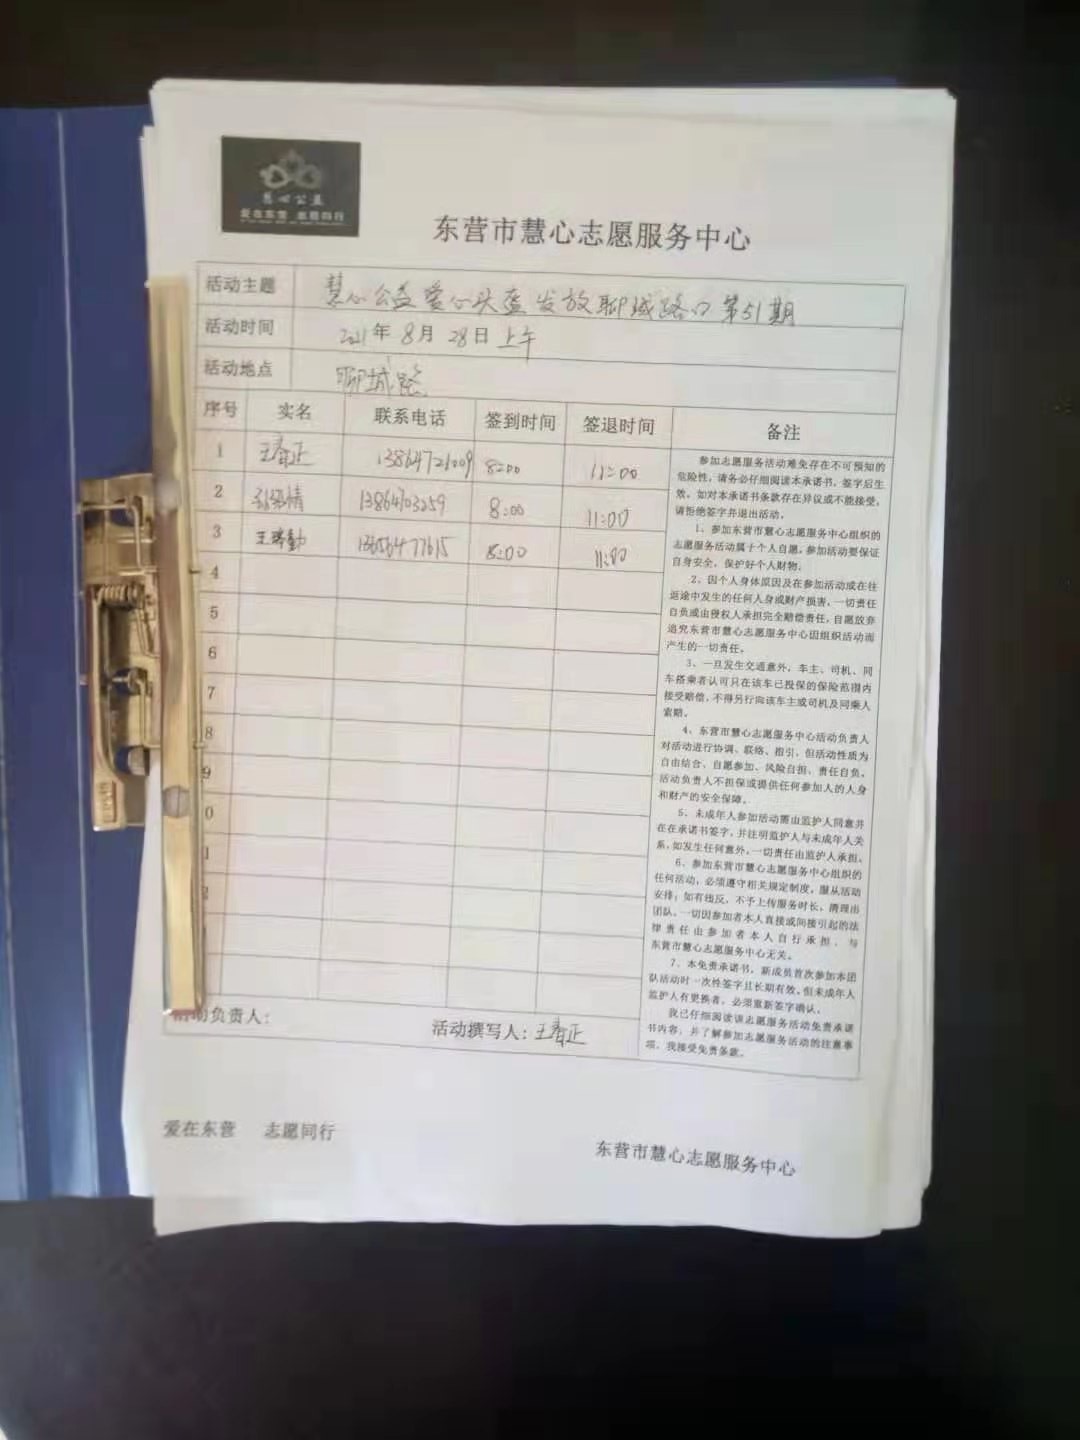 慧心公益
爱在东营 志愿同行
东营市慧心志愿服务中心
活动主题 慧心公益爱心头盔发放聊城路口第51期
活动时间 2021年8月28日上午
活动地点 聊城路
序号 实名 联系电话 签到时间 签退时间 备注
1 王春正 13864721009 8:00 11:00
2 情 13864703259 8:00 11:00
3 王 勤 13656477615 8:00 11:00
4
5
6
7
8
9
0
1
2
参加志愿服务活动难免存在不可预知的
危险性，请务必仔细阅读本承诺书，签字后生
效。如对本承诺书条款存在异议或不能接受，
请拒绝签字并退出活动。
1、参加东营市慧心志愿服务中心组织的
志愿服务活动属于个人自愿，参加活动要保证
自身安全，保护好个人财物。
2、因个人身体原因及在参加活动或在往
返途中发生的任何人身或财产损害，一切责任
自负或由侵权人承担完全赔偿责任，自愿放弃
追究东营市慧心志愿服务中心因组织活动而
产生的一切责任。
3、一旦发生交通意外，车主、司机、同
车搭乘者认可只在该车已投保的保险范围内
接受赔偿，不得另行向该车主或司机及同乘人
索赔。
4、东营市慧心志愿服务中心活动负责人
对活动进行协调、联络、指引，但活动性质为
自由结合、自愿参加、风险自担、责任自负，
活动负责人不担保或提供任何参加人的人身
和财产的安全保障。
5、未成年人参加活动需由监护人同意并
在在承诺书签字，并注明监护人与未成年人关
系，如发生任何意外，一切责任由监护人承担。
6、参加东营市慧心志愿服务中心组织的
任何活动，必须遵守相关规定制度，服从活动
安排；如有违反，不予上传服务时长，清理出
团队。一切因参加者本人直接或间接引起的法
律责任由参加者本人自行承担，与
东营市慧心志愿服务中心无关。
7、本免责承诺书，新成员首次参加本团
队活动时一次性签字且长期有效。但未成年人
监护人有更换者，必须重新签字确认。
我已仔细阅读该志愿服务活动免责承诺
书内容，并了解参加志愿服务活动的注意事
项。我接受免责条款。
活动负责人： 活动撰写人：王春正
爱在东营 志愿同行
东营市慧心志愿服务中心